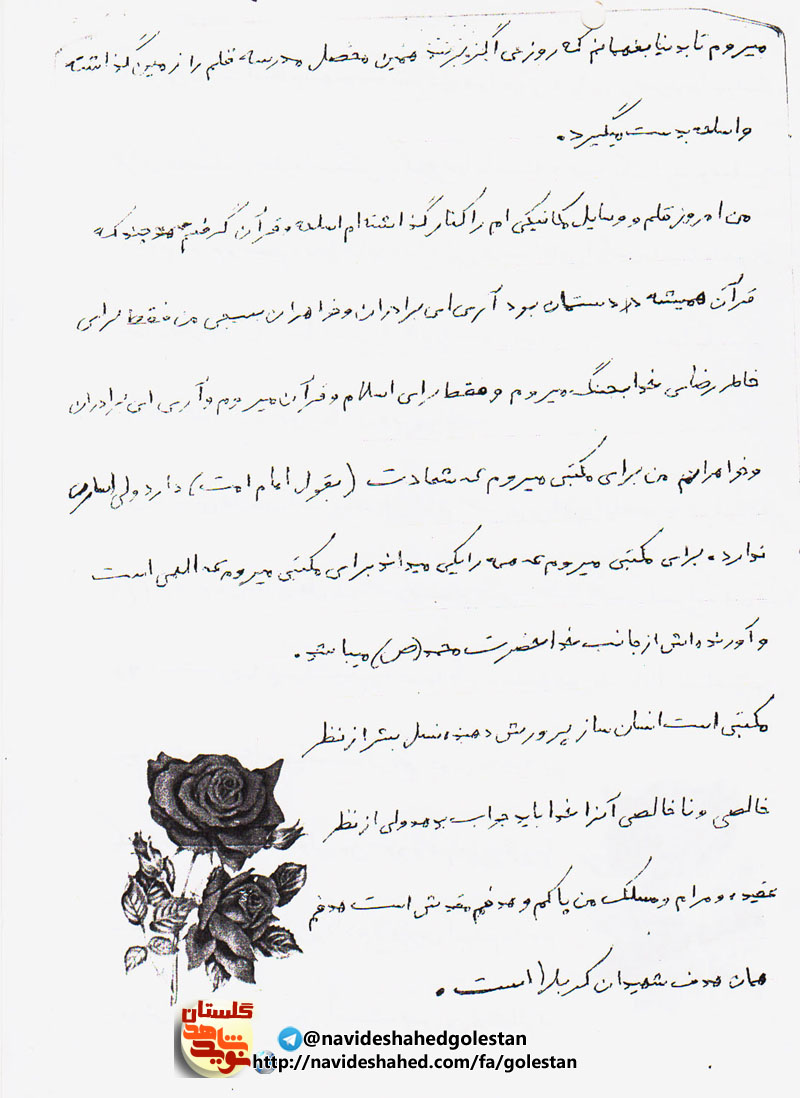 میروم تا بدنیا بفهمانم که روزی اگر بزنند همین محصل مدرسه قلم را زمین گذاشته
و اسلحه بدست میگیرد.
من امروز قلم و وسایل مکانیکی ام را کنار گذاشته ام اسلحه و قرآن گرفتم هر چند که
قرآن همیشه در دستمان بود آری ای برادران و خواهران بسیجی من فقط برای
خاطر رضای خدا بجنگ میروم و فقط برای اسلام و قرآن میروم و آری ای برادران
و خواهران من برای مکتبی میروم که شهادت (بقول امام امت) دارد ولی اسارت
ندارد. برای مکتبی میروم که همه را یکی میداند برای مکتبی میروم که الهی است
و آورنده اش از جانب خدا حضرت محمد (ص) میباشد.
مکتبی است انسان ساز پرورش دهنده نسل بشر از نظر
خالصی و ناخالصی آنرا خدا باید جواب بدهد ولی از نظر
عقیده و مرام و مسلک من پاکم و هدفم مقدس است هدفم
همان هدف شهیدان کربلا است.
گلستان
نوید شاهد
@navideshahedgolestan
http://navideshahed.com/fa/golestan